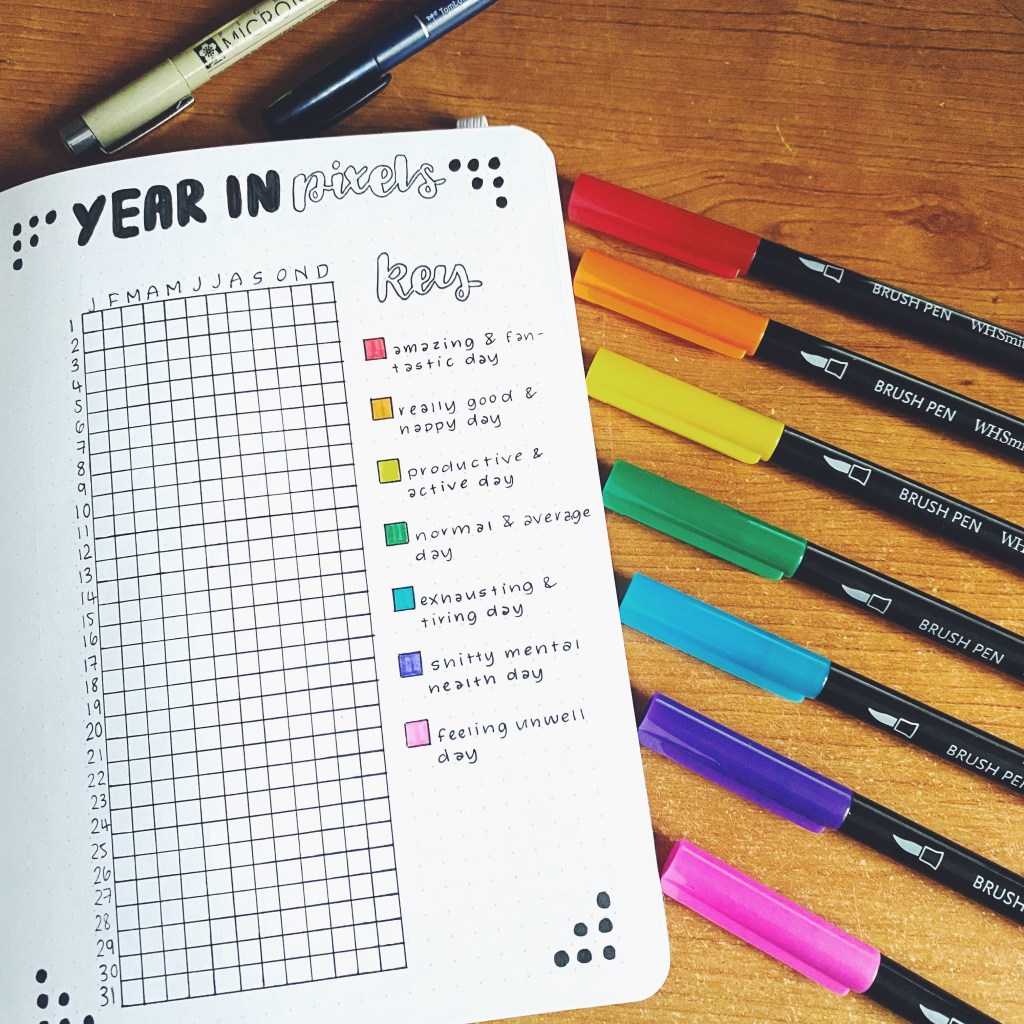 MICRON
Tomb
YEAR IN pixels
key
J F M A M J J A S O N D
1
2
3
4
5
6
7
8
9
10
11
12
13
14
15
16
17
18
19
20
21
22
23
24
25
26
27
28
29
30
31
amazing & fan-
tastic day
really good &
happy day
productive &
active day
normal & average
day
exhausting &
tiring day
shitty mental
health day
feeling unwell
day
BRUSH PEN WHSmith
BRUSH PEN WHSmi
BRUSH PEN WH
BRUSH PEN
BRUSH PEN
BRUSH